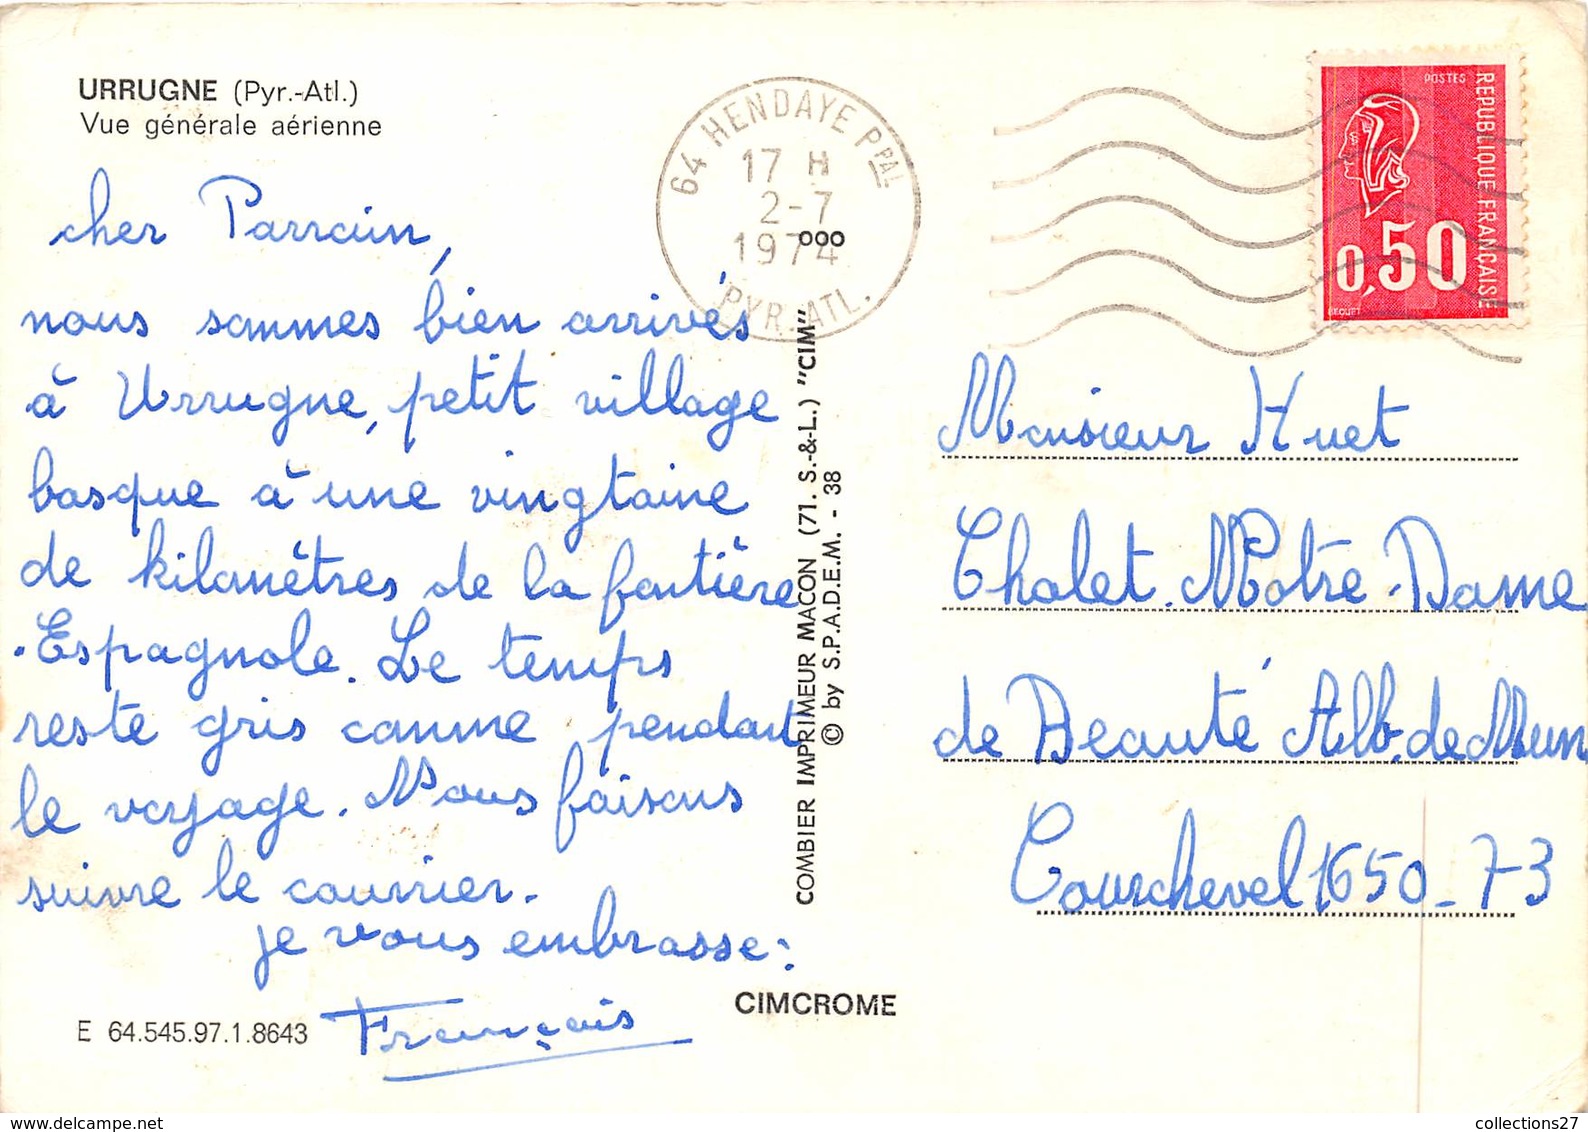 URRUGNE (Pyr.-Atl.)
Vue générale aérienne
cher Parrain,
nous sommes bien arrivés
à Urrugne, petit village
basque à une vingtaine
de kilomètres de la fontière
Espagnole. Le temps
reste gris comme pendant
le voyage. Nous faisons
suivre le courrier.
je vous embrasse.
François
E 64.545.97.1.8643
CIMCROME
COMBIER IMPRIMEUR MACON (71. S.-&-L.) "CIM"
© by S.P.A.D.E.M. - 38
64 HENDAYE PPAL
17 H
2-7
1974
PYR-ATL.
000
POSTES
REPUBLIQUE FRANÇAISE
0,50
BEQUET
Monsieur Huet
Chalet. Notre-Dame
de Beauté Alb. de Mun
Courchevel 1650 - 73
collections27